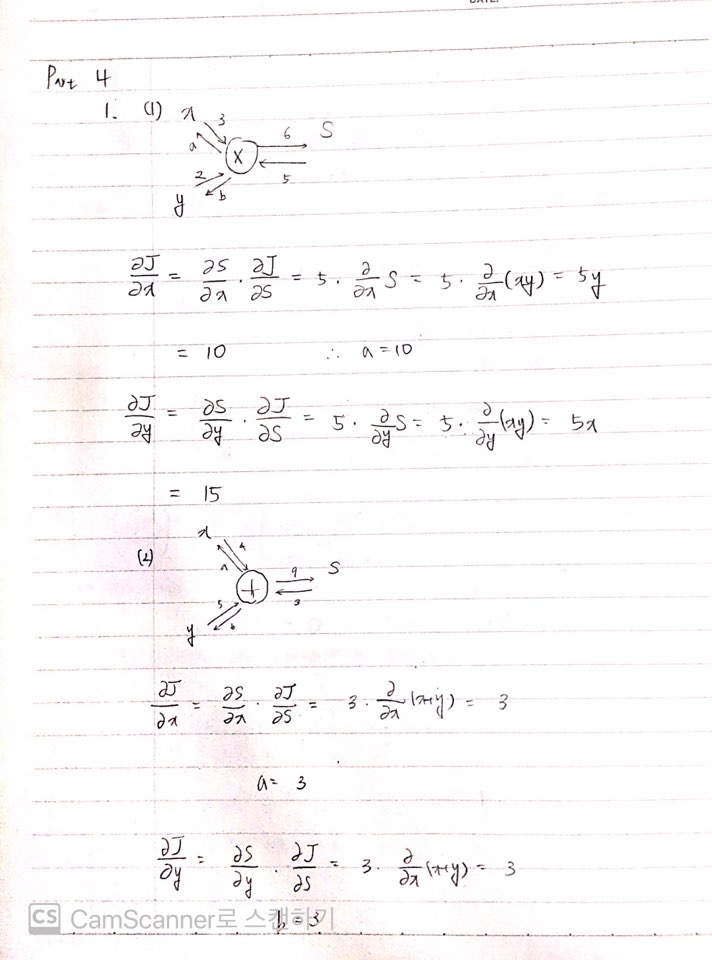 DATE.
Part 4
1. (1) x 3 6 S
a x
2 5
y b
∂J/∂x = ∂S/∂x · ∂J/∂S = 5 · ∂/∂x S = 5 · ∂/∂x (xy) = 5y
= 10 ∴ a = 10
∂J/∂y = ∂S/∂y · ∂J/∂S = 5 · ∂/∂y S = 5 · ∂/∂y (xy) = 5x
= 15
x 4
(2) a + 9 S
5 3
y b
∂J/∂x = ∂S/∂x · ∂J/∂S = 3 · ∂/∂x (x+y) = 3
a = 3
∂J/∂y = ∂S/∂y · ∂J/∂S = 3 · ∂/∂x (x+y) = 3
b = 3
CS CamScanner로 스캔하기